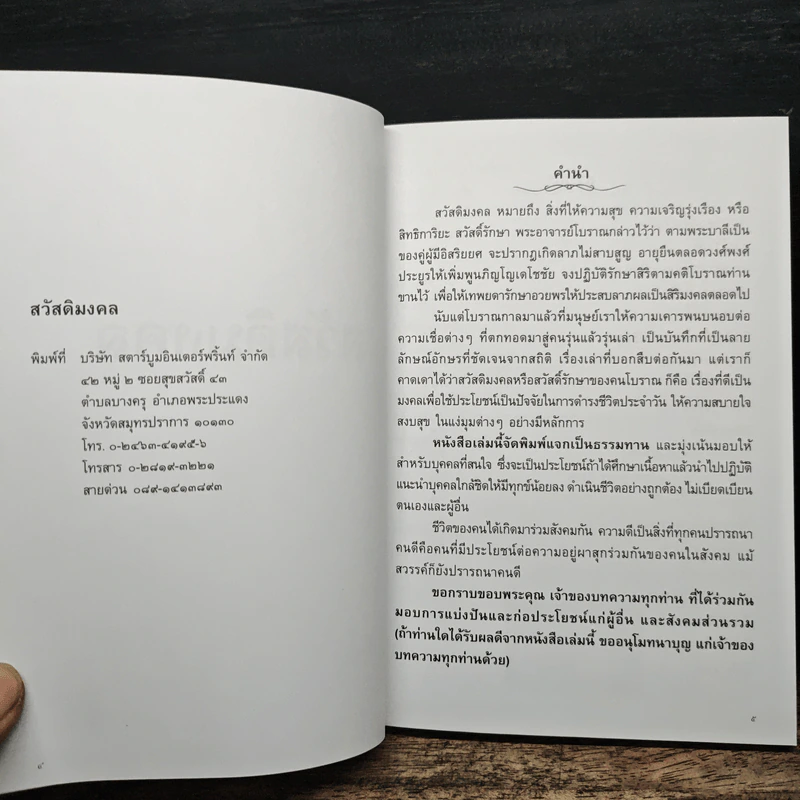 สวัสดิมงคล
พิมพ์ที่ บริษัท สตาร์บูมอินเตอร์พริ้นท์ จำกัด
๔๒ หมู่ ๒ ซอยสุขสวัสดิ์ ๔๓
ตำบลบางครุ อำเภอพระประแดง
จังหวัดสมุทรปราการ ๑๐๑๓๐
โทร. ๐-๒๔๖๓-๔๑๙๕-๖
โทรสาร ๐-๒๘๑๙-๓๒๒๑
สายด่วน ๐๘๙-๑๔๑๓๘๙๓
๔
คำนำ
สวัสดิมงคล หมายถึง สิ่งที่ให้ความสุข ความเจริญรุ่งเรือง หรือ
สิทธิการิยะ สวัสดิ์รักษา พระอาจารย์โบราณกล่าวไว้ว่า ตามพระบาลีเป็น
ของคู่ผู้มีอิสริยยศ จะปรากฏเกิดลาภไม่สาบสูญ อายุยืนตลอดวงศ์พงศ์
ประยูรให้เพิ่มพูนภิญโญเดโชชัย จงปฏิบัติรักษาสิริตามคติโบราณท่าน
ขานไว้ เพื่อให้เทพยดารักษาอวยพรให้ประสบลาภผลเป็นสิริมงคลตลอดไป
นับแต่โบราณกาลมาแล้วที่มนุษย์เราให้ความเคารพนบนอบต่อ
ความเชื่อต่างๆ ที่ตกทอดมาสู่คนรุ่นแล้วรุ่นเล่า เป็นบันทึกที่เป็นลาย
ลักษณ์อักษรที่ชัดเจนจากสถิติ เรื่องเล่าที่บอกสืบต่อกันมา แต่เราก็
คาดเดาได้ว่าสวัสดิมงคลหรือสวัสดิ์รักษาของคนโบราณ ก็คือ เรื่องที่ดีเป็น
มงคลเพื่อใช้ประโยชน์เป็นปัจจัยในการดำรงชีวิตประจำวัน ให้ความสบายใจ
สงบสุข ในแง่มุมต่างๆ อย่างมีหลักการ
หนังสือเล่มนี้จัดพิมพ์แจกเป็นธรรมทาน และมุ่งเน้นมอบให้
สำหรับบุคคลที่สนใจ ซึ่งจะเป็นประโยชน์ถ้าได้ศึกษาเนื้อหาแล้วนำไปปฏิบัติ
แนะนำบุคคลใกล้ชิดให้มีทุกข์น้อยลง ดำเนินชีวิตอย่างถูกต้อง ไม่เบียดเบียน
ตนเองและผู้อื่น
ชีวิตของคนได้เกิดมาร่วมสังคมกัน ความดีเป็นสิ่งที่ทุกคนปรารถนา
คนดีคือคนที่มีประโยชน์ต่อความอยู่ผาสุกร่วมกันของคนในสังคม แม้
สวรรค์ก็ยังปรารถนาคนดี
ขอกราบขอบพระคุณ เจ้าของบทความทุกท่าน ที่ได้ร่วมกัน
มอบการแบ่งปันและก่อประโยชน์แก่ผู้อื่น และสังคมส่วนรวม
(ถ้าท่านใดได้รับผลดีจากหนังสือเล่มนี้ ขออนุโมทนาบุญ แก่เจ้าของ
บทความทุกท่านด้วย)
๕